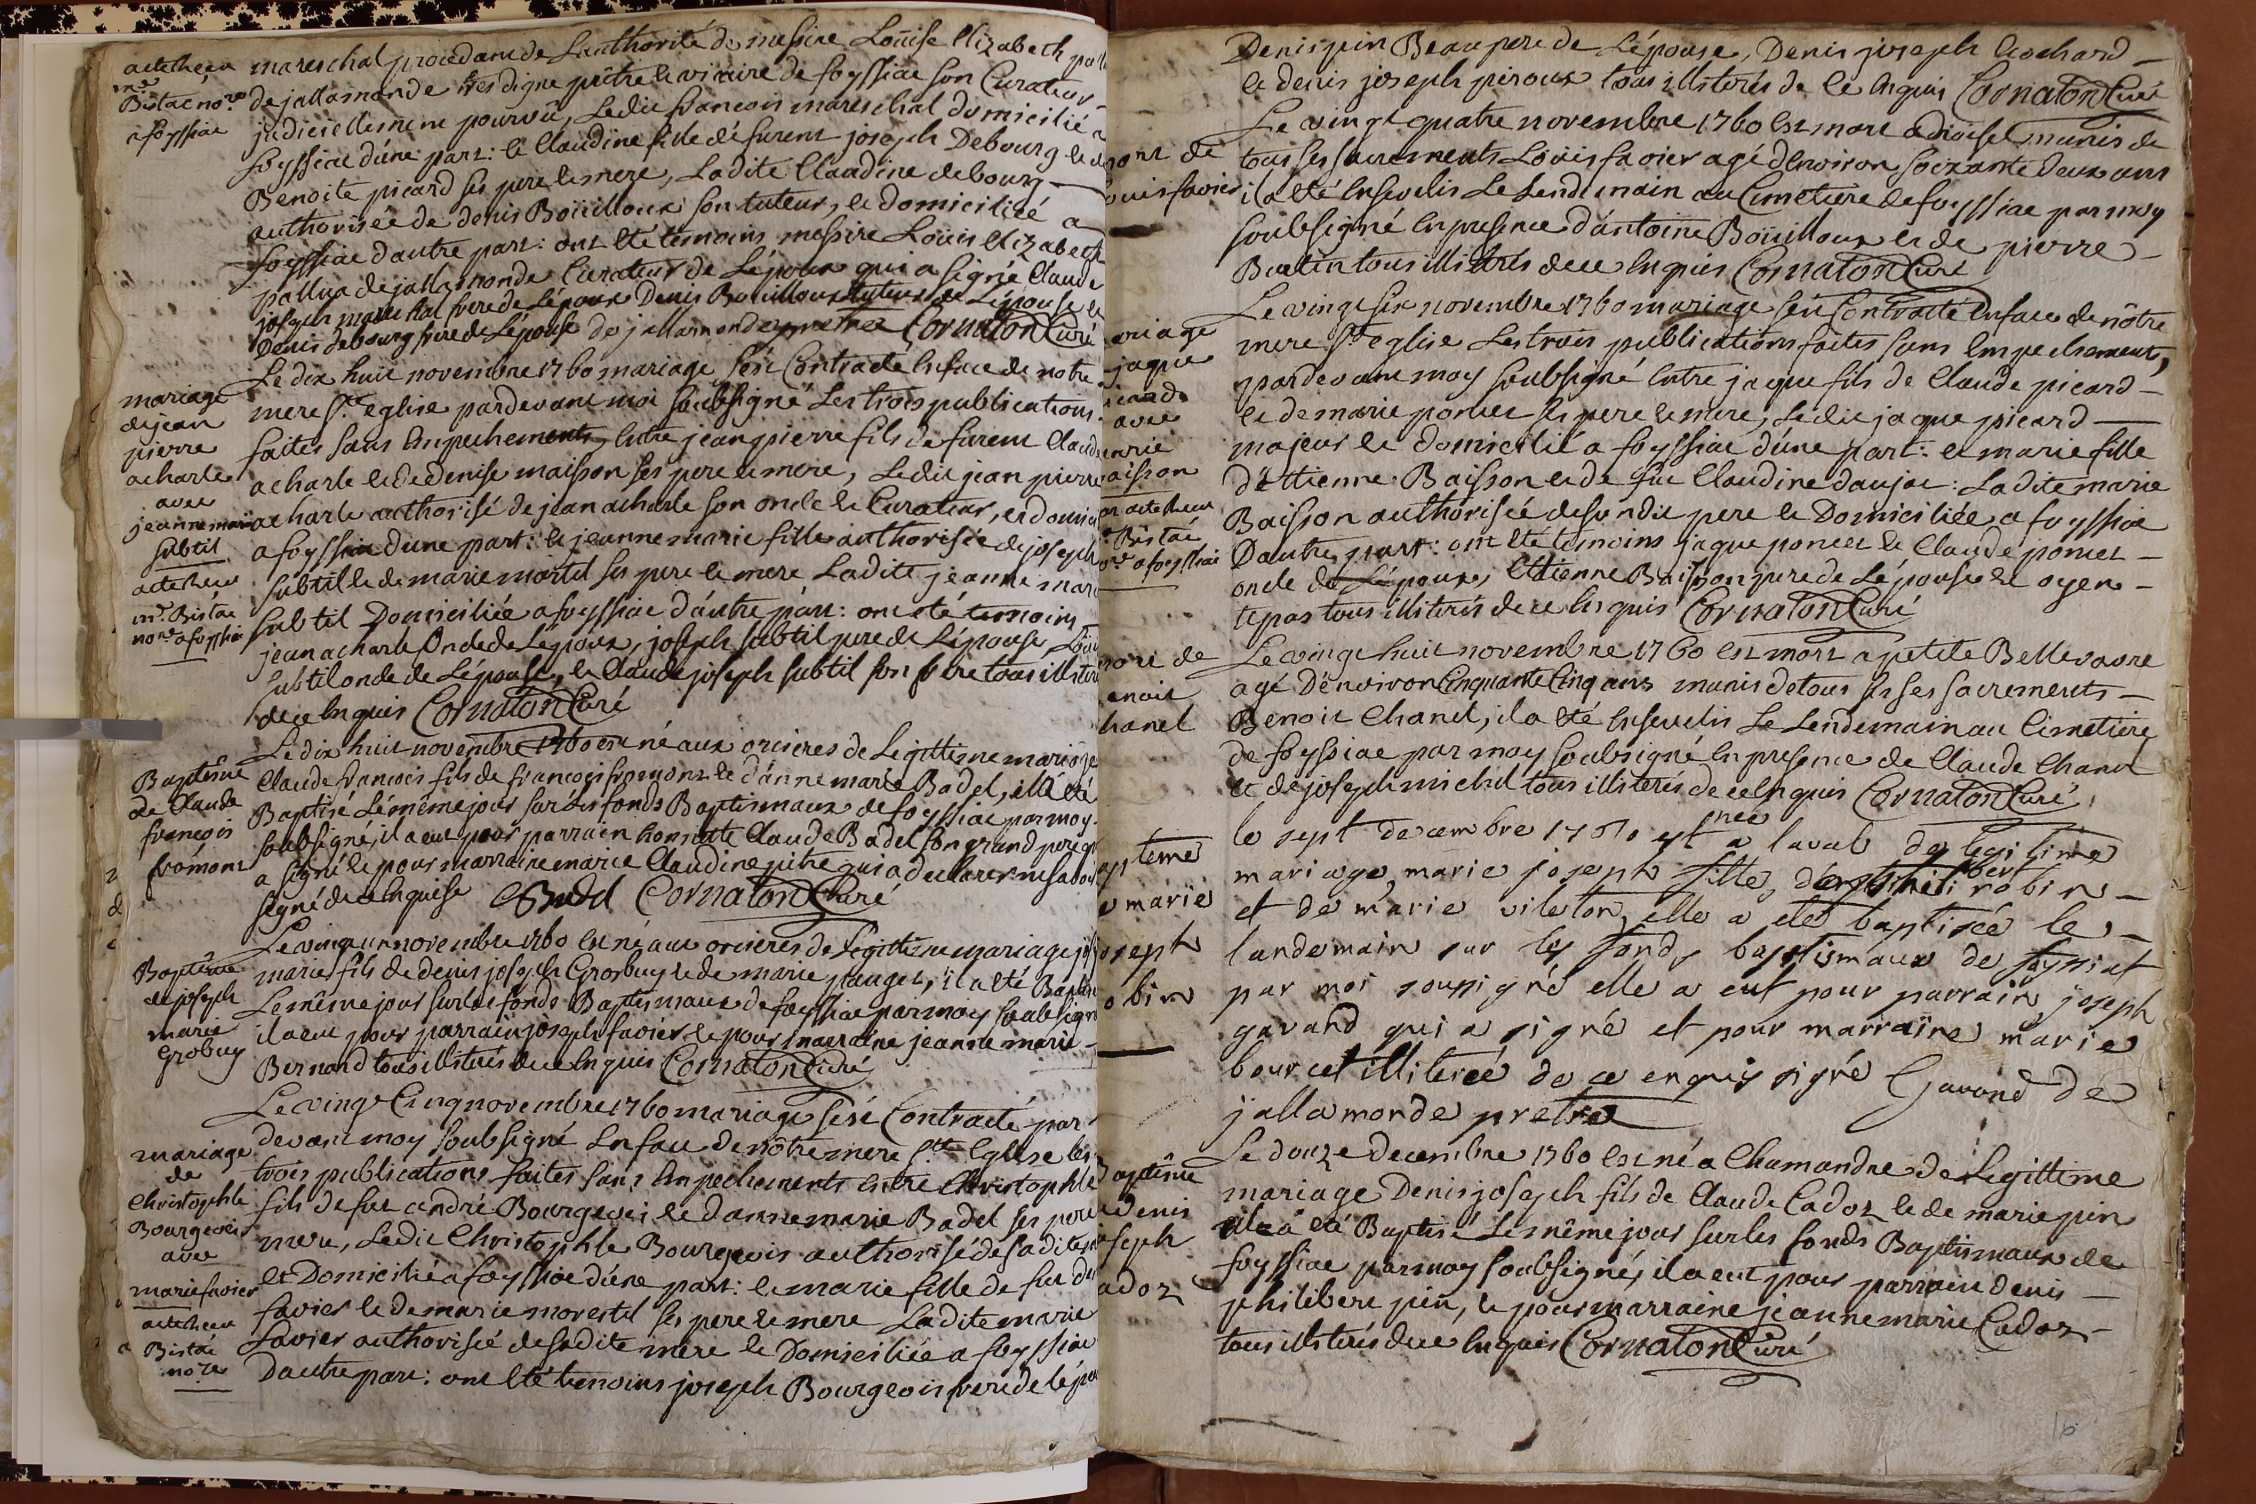 acte recu
mre
Bistac nore
a foyssiac
mareschal procedant de L'authorité de messire Loüise Elizabeth
de jallamonde tres digne prêtre et vicaire de foyssiac son Curateur
judiciellement pourvû, Ledit francois mareschal domicilié a
foyssiac d'úne part: et Claudine fille de furent joseph Debourg et de
Benoite picard ses pere et mere, Ladite Claudine debourg
authorisée de denis Boüilloux son tuteur, et domiciliée a
foyssiac d'autre part: ont été temoins messire Loüis Elizabeth
palluà de jallamonde Curateur de L'époux qui a signé Claude
joseph mareschal frere de L'époux Denis Bouilloux tuteur de L'épouse et
Denis debourg frere de L'épouse de jallamonde pretre Cornaton Curé
mariage
de jean
pierre
acharle
avec
jeanne marie
subtil
acte recu
mre Bistac
nore a foyssia
Le dix huit novembre 1760 mariage s'est Contracté En face de notre
mere Ste eglise pardevant moi soubsigné Les trois publications
faites sans Empechements, Entre jean pierre fils de furent Claude
acharle et de denise maisson ses pere et mere, Ledit jean pierre
acharle authorisé de jean acharle son oncle et Curateur, et domicilié
a foyssiac d'une part: et jeanne marie fille authorisée de joseph
subtil et de marie martel ses pere et mere Ladite jeanne marie
subtil Domiciliée a foyssiac d'áutre part: ont été temoins
jean acharle Oncle de L'époux, joseph subtil pere de L'épouse, Loüis
subtil oncle de L'épouse, et Claude joseph subtil son frere tous illiterés
de ce Enquis Cornaton Curé
Baptême
de Claude
francois
fromont
Le dix huit novembre 1760 est né aux orcieres de Legittime mariage
Claude francois fils de francois fromont et d'ánne marie Badel, il a été
Baptisé Le même jour sur les fonds Baptismaux de foyssiac par moy
soubsigné, il a eut pour parrain honnette Claude Badel son grand pere qui
a signé et pour marraine marie Claudine pitre qui a declarer ne savoir
signé de ce Enquise CBadel Cornaton Curé
Baptême
de joseph
marie
Grobuy
Le vingt un novembre 1760 Est né aux orcieres de Legittime mariage joseph
marie fils de denis joseph Grosbuy et de marie pauget, il a été Baptisé
Le même jour sur les fonds Baptismaux de foyssiac par moy soubsigné
il a eut pour parrain joseph favier et pour marraine jeanne marie
Bernand tous illiterés de ce Enquis Cornaton Curé
mariage
de
Christophle
Bourgeois
avec
marie favier
acte recu
Bistac
nore
Le vingt Cinq novembre 1760 mariage s'est Contracté par
devant moy soubsigné En face de nôtre mere Ste Eglise les
trois publications faites sans Empechements entre Christophle
fils de fut andré Bourgeois et d'anne marie Badel ses pere et
mere, Ledit Christophle Bourgeois authorisé de sadite mere
et Domicilié a foyssiac d'úne part: et marie fille de fut
favier et de marie morestel ses pere et mere Ladite marie
favier authorisée de sadite mere et Domiciliée a foyssiac
D'autre part: ont été temoins joseph Bourgeois frere de l'époux
Denis pin Beaupere de L'épouse, Denis joseph Cochard
et denis joseph peroux tous illiterés de ce Enquis Cornaton Curé
mort de
Louis favier
Le vingt quatre novembre 1760 Est mort a munis de
tous ses sacrements Loüis favier agé d'Environ soixante deux ans
il a été Ensevelis Le Lendemain au Cimetiere de foyssiac par moy
soubsigné En presence d'ántoine Boüilloux et de pierre
Burtin tous illiterés de ce Enquis Cornaton Curé
mariage
jaque
picard
avec
marie
Baisson
acte recu
Bistac
nore a foyssiac
Le vingt six novembre 1760 mariage s'est Contracté En face de nôtre
mere Ste eglise Les trois publications faites sans Empechements,
pardevant moy soubsigné Entre jaque fils de Claude picard
et de marie poncet ses pere et mere, Ledit jaque picard
majeur et domicilié a foyssiac d'úne part: et marie fille
d'Ettienne Baisson et de fut Claudine daujat: Ladite marie
Baisson authorisée de sondit pere et Domiciliée a foyssiac
D'autre part: ont été temoins jaque poncet et Claude poncet
oncle de L'époux, Ettienne Baisson pere de L'épouse et oyen
tepas tous illiterés de ce Enquis Cornaton Curé
mort de
Benoit
Chanel
Le vingt huit novembre 1760 est mort a petite Bellevavre
agé D'énviron Cinquante Cinq ans munis de tous ses ses sacrements
Benoit Chanel, il a été Ensevelis Le Lendemain au Cimetiere
de foyssiac par moy soubsigné En presence de Claude Chanel
et de joseph michel tous illiterés de ce Enquis Cornaton Curé
Bapteme
de marie
joseph
robin
le sept decembre 1760 est nee a laval de legitime
mariage marie joseph fille robin
et de marie vileton elle a eté baptisée le
landemain sur les fonds baptismaux de foyssiat
par moi soussigné elle a eut pour parrain joseph
gavand qui a signé et pour marraine marie
bourcet illiterée de ce enquis signé Gavand De
jallamonde pretre
Baptême
de Denis
joseph
Cadoz
Le douze decembre 1760 Est né a Chamandre de Legittime
mariage Denis joseph fils de Claude Cadoz et de marie pin
il a été Baptisé Le même jour sur les fonds Baptismaux de
foyssiac par moy soubsigné, il a eut pour parrain denis
philibert pin, et pour marraine jeanne marie Cadoz
tous illiterés de ce Enquis Cornaton Curé
16